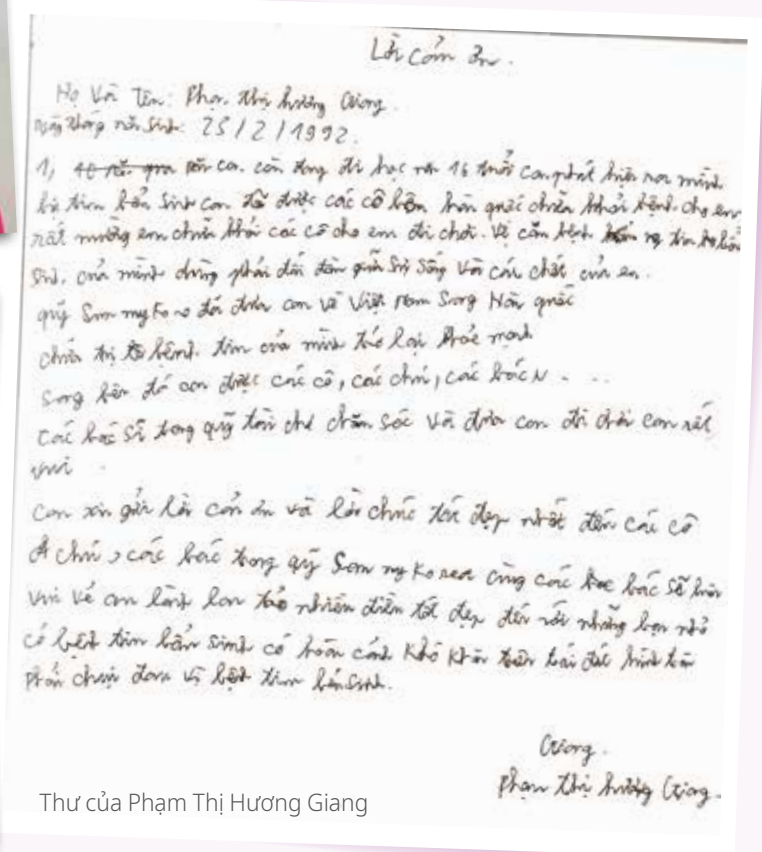 Lời cảm ơn.
Họ Và Tên: Phạm Thị Hương Giang.
Ngày tháng năm Sinh: 25/2/1992.
1, con còn đang đi học năm 16 tuổi con phát hiện ra mình
bị tim bẩm Sinh con đã được các cô bên hàn quốc chữa khỏi bệnh. cho em
rất mừng em chữa khỏi các cô cho em đi chơi. Vì căn bệnh tim bẩm
Sinh. của mình đừng phải đến Sự Sống và cái chết của em.
quỹ đã đưa con về Việt Nam Sang Hàn quốc
chữa trị bệnh. tim của mình trở lại khỏe mạnh
Sang bên đó con được các cô, các chú, các bác
các bác Sĩ trong quỹ chăm Sóc và đưa con đi chơi con rất
vui
con xin gửi lời cảm ơn và lời chúc tốt đẹp nhất đến các cô
chú, các bác trong quỹ Som my Korea cùng các bác Sĩ luôn
vui vẻ an lành nhiều điềm tốt đẹp đến với những bạn nhỏ
có bệnh tim bẩm sinh có hoàn cảnh khó khăn trên trái đất
phải chịu đau vì bệnh tim bẩm Sinh.
Giang.
Phạm Thị Hương Giang.
Thư của Phạm Thị Hương Giang